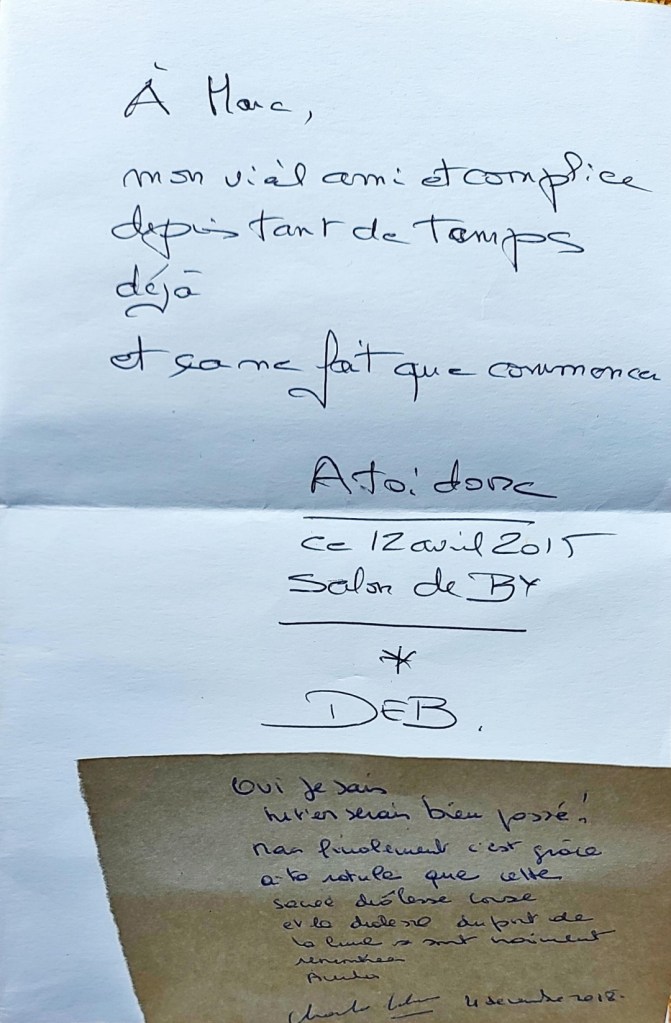 À Marc,
mon viàl ami et complice
depuis tant de temps
déjà
et ça ne fait que commencer
A toi donc
ce 12 avril 2015
Salon de BY
*
DEB.
Oui je sais
tu t'en serais bien passé!
mais finalement c'est grâce
à ta rotule que cette
sacrée diôlesse corse
et la diolesse du port de
la lune se sont vraiment
4 decembre 2018.